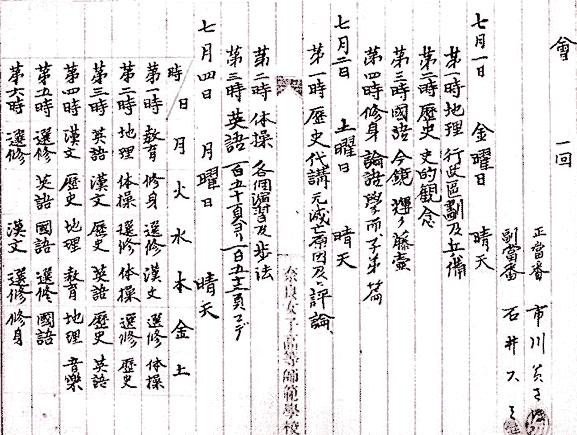 會 一回
正當番 市川
副當番 石井
七月一日 金曜日 晴天
第一時 地理 行政區劃及立備
第二時 歷史 史的観念
第三時 國語 今鏡
第四時 修身 論語學而子弟篇
七月二日 土曜日 晴天
第一時 歷史 代講 元滅亡原因及評論
第二時 体操 各個演習及歩法
第三時 英語 百五十頁ヨリ一百五十二頁マデ
七月四日 月曜日 晴天
時 日 月 火 水 木 金 土
第一時 教育 修身 選修 漢文 選修 体操
第二時 地理 体操 選修 体操 選修 歷史
第三時 英語 漢文 歷史 英語 歷史 英語
第四時 漢文 歷史 地理 教育 地理 音樂
第五時 選修 英語 國語 選修 國語
第六時 選修 漢文 選修 修身
奈良女子高等師範學校